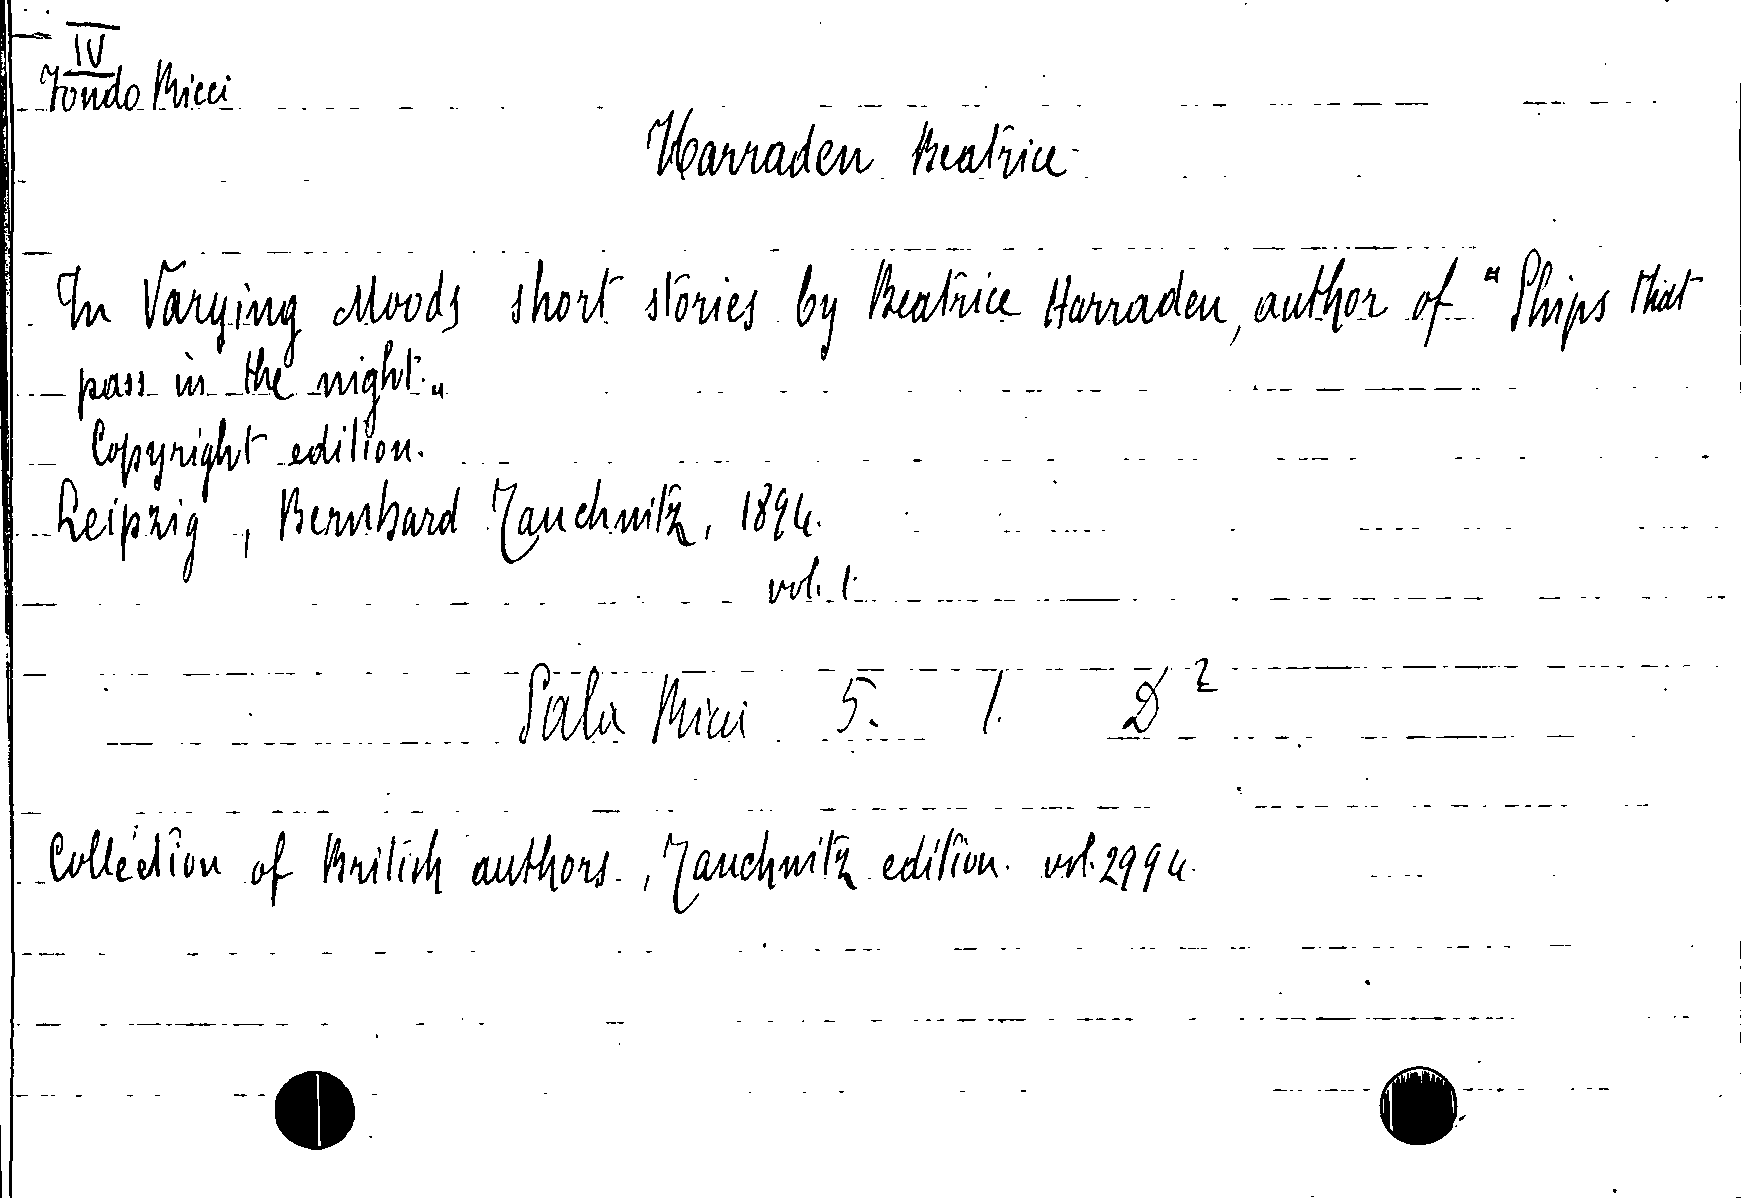 IV
Fondo Ricci
Harraden Beatrice
In Varying Moods short stories by Beatrice Harraden, author of "Ships that
pass in the night."
Copyright edition.
Leipzig, Bernhard Tauchnitz, 1894.
vol. 1.
Sala Ricci 5. 1. D²
Collection of British authors, Tauchnitz edition. vol. 2994.